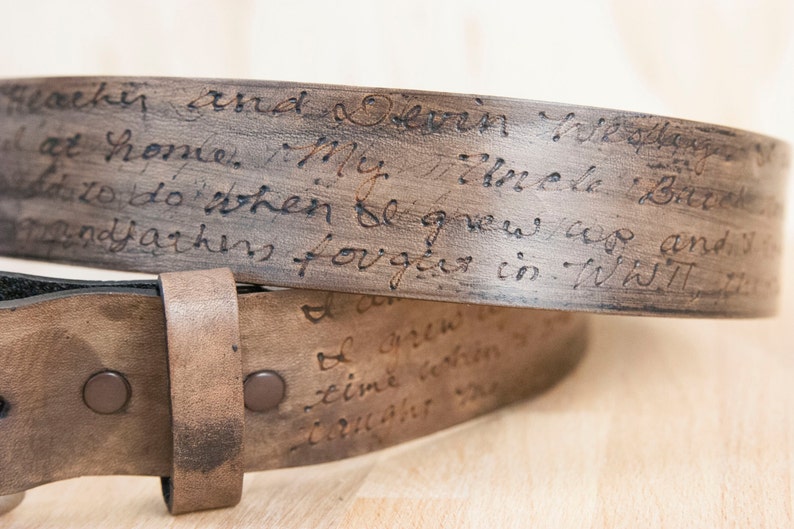 Heather and Devin
at home. My Uncle
to do when I grew up and I
grandfathers fought in WWII,
I
I grew
time when
taught me